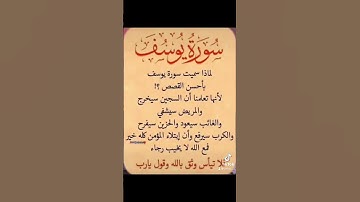 سُورَةُ يُوسُفَ
لماذا سميت سورة يوسف
بأحسن القصص ؟!
لأنها تعلمنا أن السجين سيخرج
والمريض سيشفي
والغائب سيعود والحزين سيفرح
والكرب سيرفع وأن إبتلاء المؤمن كله خير
فمع الله لا يخيب رجاء
لا تيأس وثق بالله وقول يارب